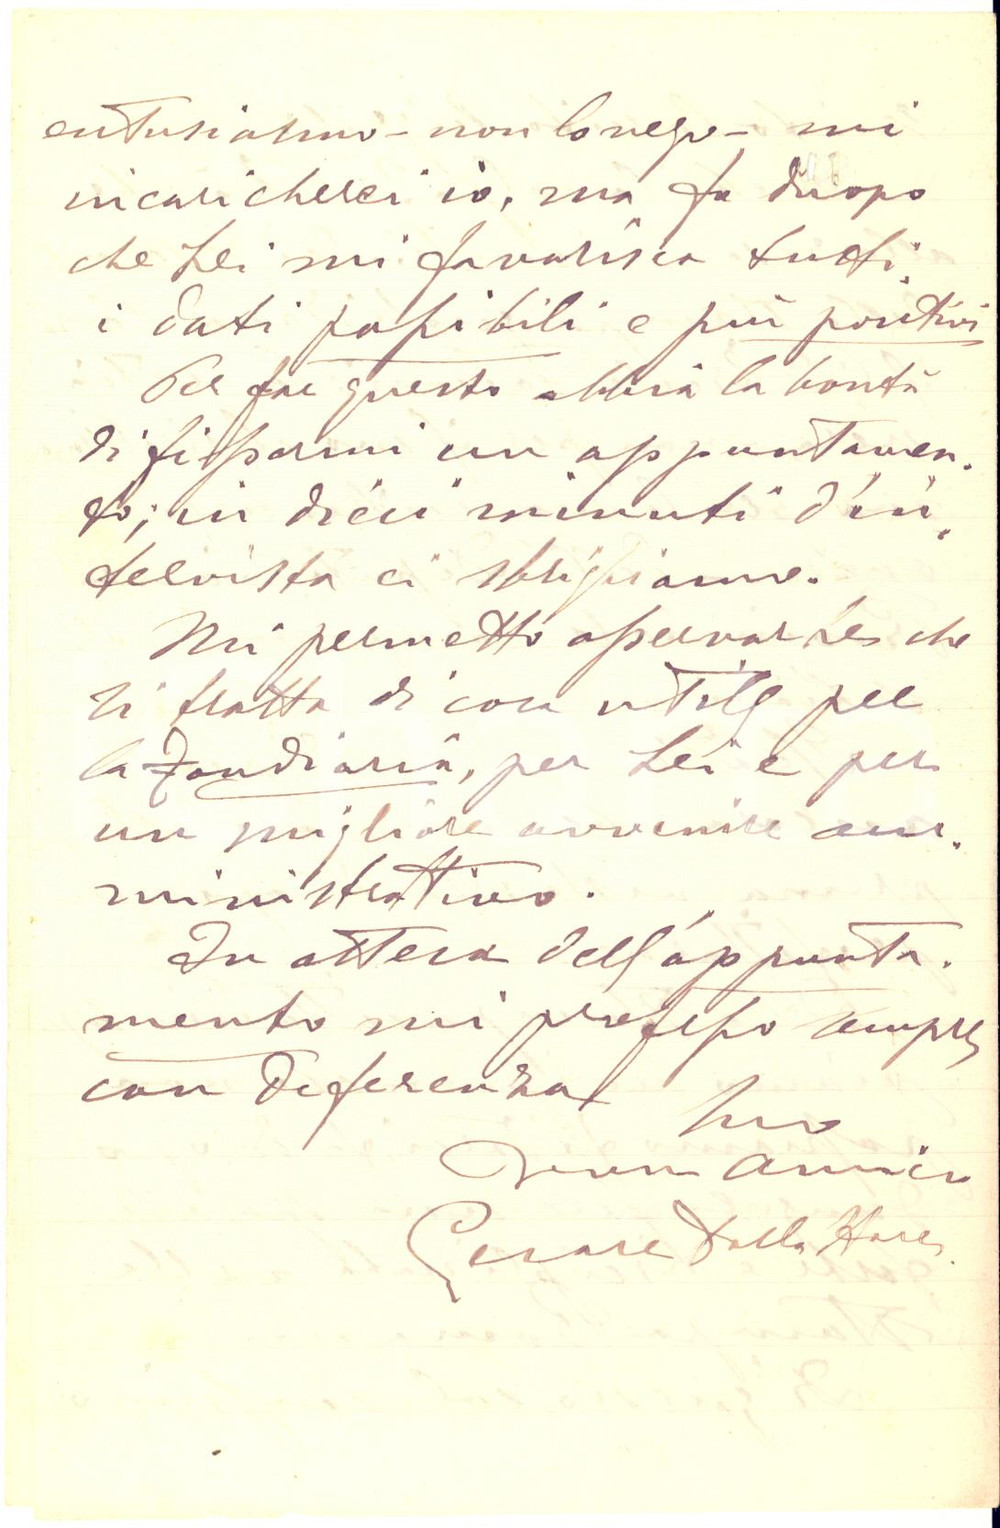 entusiasmo - non lo nego - mi
incaricherei io, ma fa d'uopo
che Lei mi favorisca tutti
i dati possibili e più positivi
Per far questo abbia la bontà
di fissarmi un appuntamen-
to; in dieci minuti d'in-
tervista ci sbrigiamo.
Mi permetto osservarLe che
si tratta di cosa utile per
la Fondiaria, per Lei e per
un migliore avvenire am-
ministrativo.
In attesa dell'appunta-
mento mi professo sempre
con deferenza
Suo
amico
Cesare Dalla